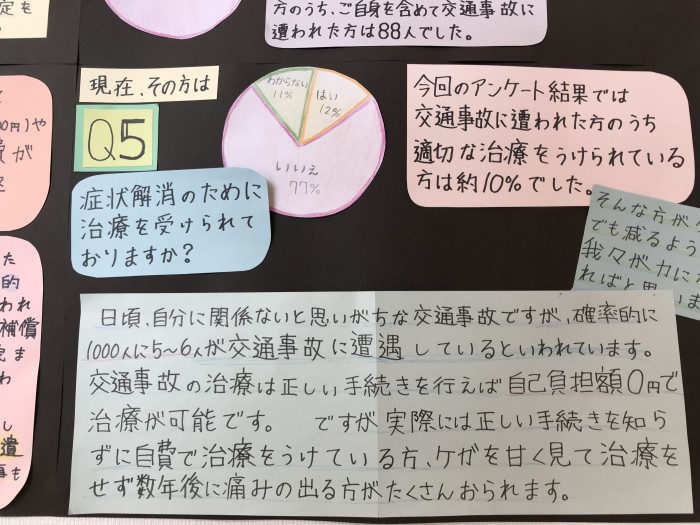 定も
方のうち、ご自身を含めて交通事故に
遭われた方は88人でした。
現在、その方は
Q5
症状解消のために
治療を受けられて
おりますか?
わからない
11%
はい
12%
いいえ
77%
今回のアンケート結果では
交通事故に遭われた方のうち
適切な治療をうけられている
方は約10%でした。
そんな方が
でも減るよう
我々が力に
ればと思いま
00円)や
費が
た
的
われ
補償
ま
わ
し
遺
も
日頃、自分に関係ないと思いがちな交通事故ですが、確率的に
1000人に5~6人が交通事故に遭遇しているといわれています。
交通事故の治療は正しい手続きを行えば自己負担額0円で
治療が可能です。 ですが実際には正しい手続きを知ら
ずに自費で治療をうけている方、ケガを甘く見て治療を
せず数年後に痛みの出る方がたくさんおられます。